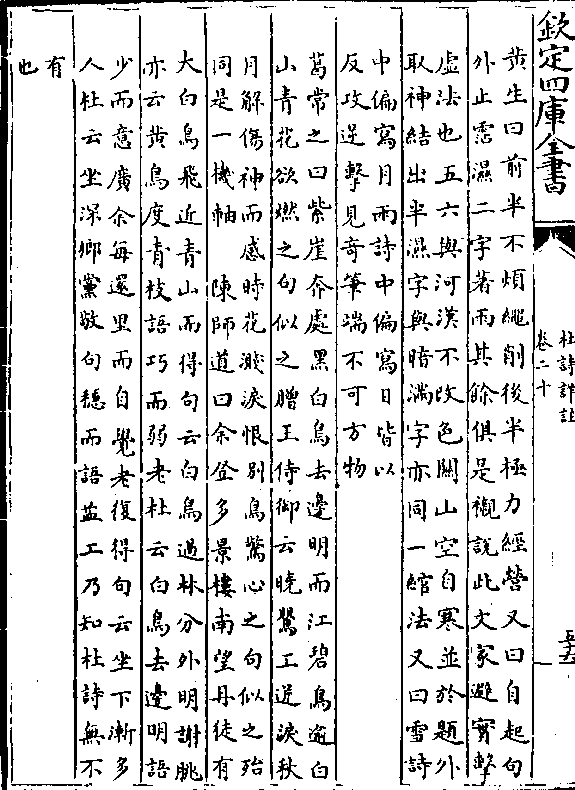 欽定四庫全書
杜詩詳註
卷二十
黄生曰前半不煩繩削後半極力經營又曰自起句
外止霑濕二字著雨其餘俱是襯說此文家避實擊
虚法也五六與河漢不改色關山空自寒並於題外
取神結出半濕字與暗滿字亦同一綰法又曰雪詩
中偏寫月雨詩中偏寫日皆以
反攻逆擊見奇筆端不可方物
葛常之曰紫崖奔處黑白鳥去邊明而江碧鳥逾白
山青花欲燃之句似之贈王侍御云曉鶯工迸淚秋
月解傷神而感時花濺淚恨别鳥驚心之句似之殆
同是一機軸　陳師道曰余登多景樓南望丹徒有
大白鳥飛近青山而得句云白鳥過林分外明謝朓
亦云黄鳥度青枝語巧而弱老杜云白鳥去邊明語
少而意廣余每還里而自覺老復得句云坐下漸多
人杜云坐深鄉黨敬句穩而語益工乃知杜詩無不
有
也